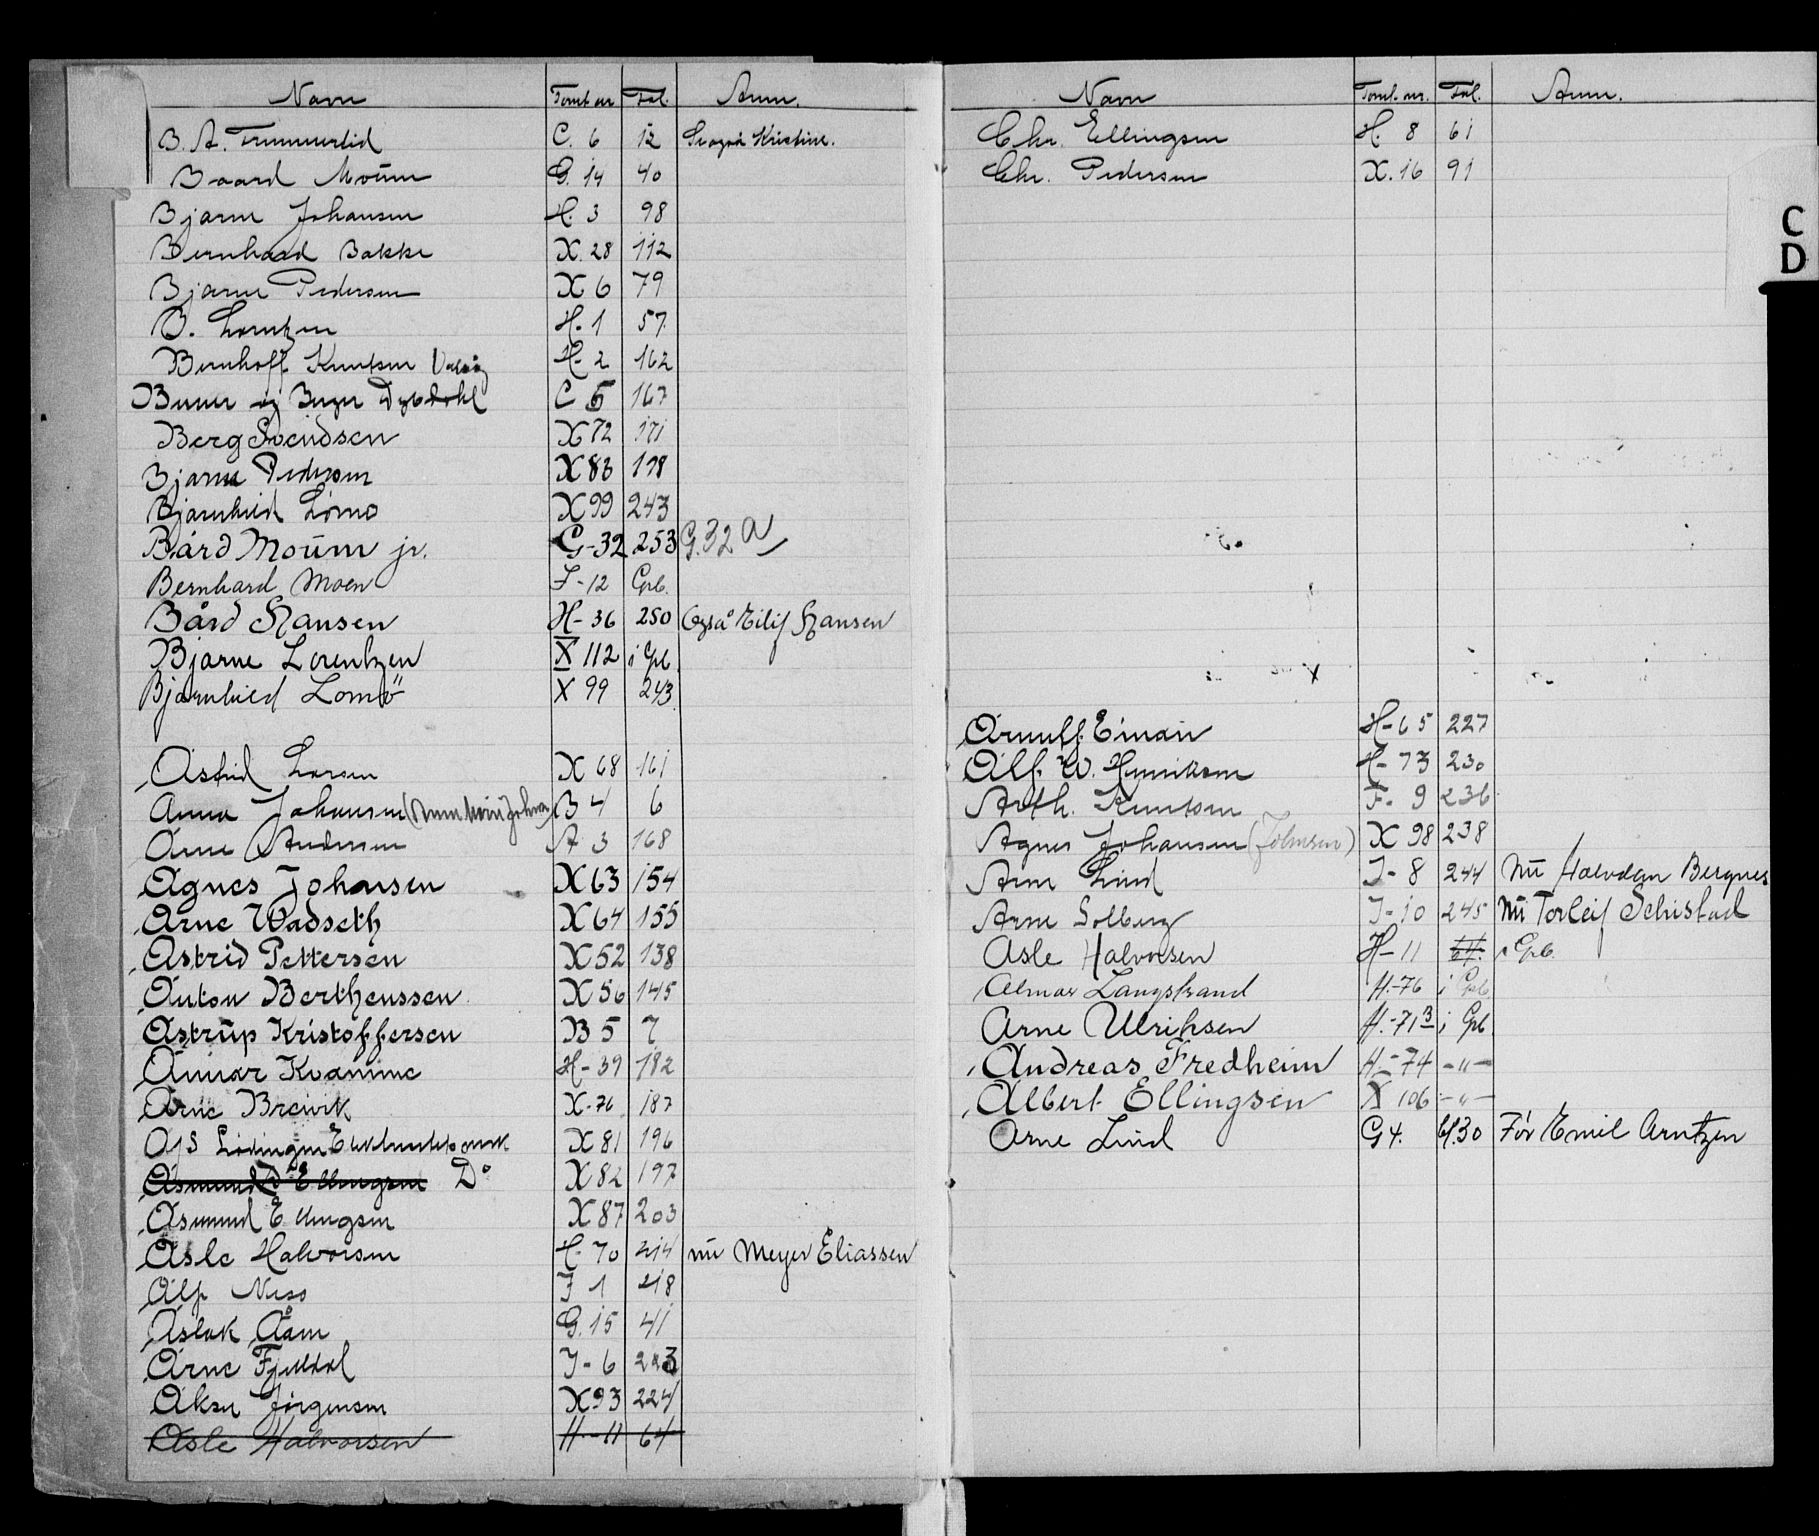 Navn Tomt nr Fol. Anm.
B. A. Trummerlid C. 6 12 Se også Kristine.
Baard Moüm G. 14 40
Bjarne Johansen H. 3 98
Bernhard Bakke X. 28 112
Bjarne Pedersen X 6 79
B. Lorntzen H. 1 57
Bernhoff Knutsen H- 2 162
og Birger Dybdahl C 5 167
Berg Svendsen X 72 171
Bjarne Pedersen X 83 198
Bjarnhild Lömo X 99 243
Bård Moüm jr. G-32 253 G.32 a
Bernhard Moen J-12 Grb.
Bård Hansen H-36 250 Også Eilif Hansen
Bjarne Lorentzen X 112 i Grb.
Bjarnhild Lomö X 99 243
Astrid Larsen X 68 161
Anna Johansen B 4 6
Arne Andersen A 3 168
Agnes Johansen X 63 154
Arne Wadseth X 64 155
Astrid Pettersen X 52 138
Anton Bertheussen X 56 145
Astrüp Kristoffersen B 5 7
Annar Kvamme H-39 182
Arne Breivik X-76 187
A/S Lödingen Elektrisitetsverk X 81 196
Asmund Ellingsen Do X 82 197
Asmund Ellingsen X 87 203
Asle Halvorsen H. 70 214 nu Meyer Eliassen
Alf Ness J 1 218
Aslak Åam G. 15 41
Arne Fjelldal J-6 223
Aksel Jörgensen X 93 224
Asle Halvorsen H-11 64
Navn Tomt. nr. Fol. Anm.
Chr. Ellingsen H. 8 61
Chr. Pedersen X. 16 91
C
D
Arnulf Einan H-65 227
Alf W. Henriksen H-73 230
Arth. Knutsen F. 9 236
Agnes Johansen (Johnsen) X 98 238
Arne Lind J-8 244 Nü Halvdan Bergnes
Arne Solberg J-10 245 Nü Torleif Schistad
Asle Halvorsen H-11 64. i Grb.
Almar Langstrand H.-76 i Grb
Arne Ulriksen H.-71 3 i Grb
Andreas Fredheim H-74 -"-
Albert Ellingsen X 106 -"-
Arne Lind G 4. bl.30 För Emil Arntzen